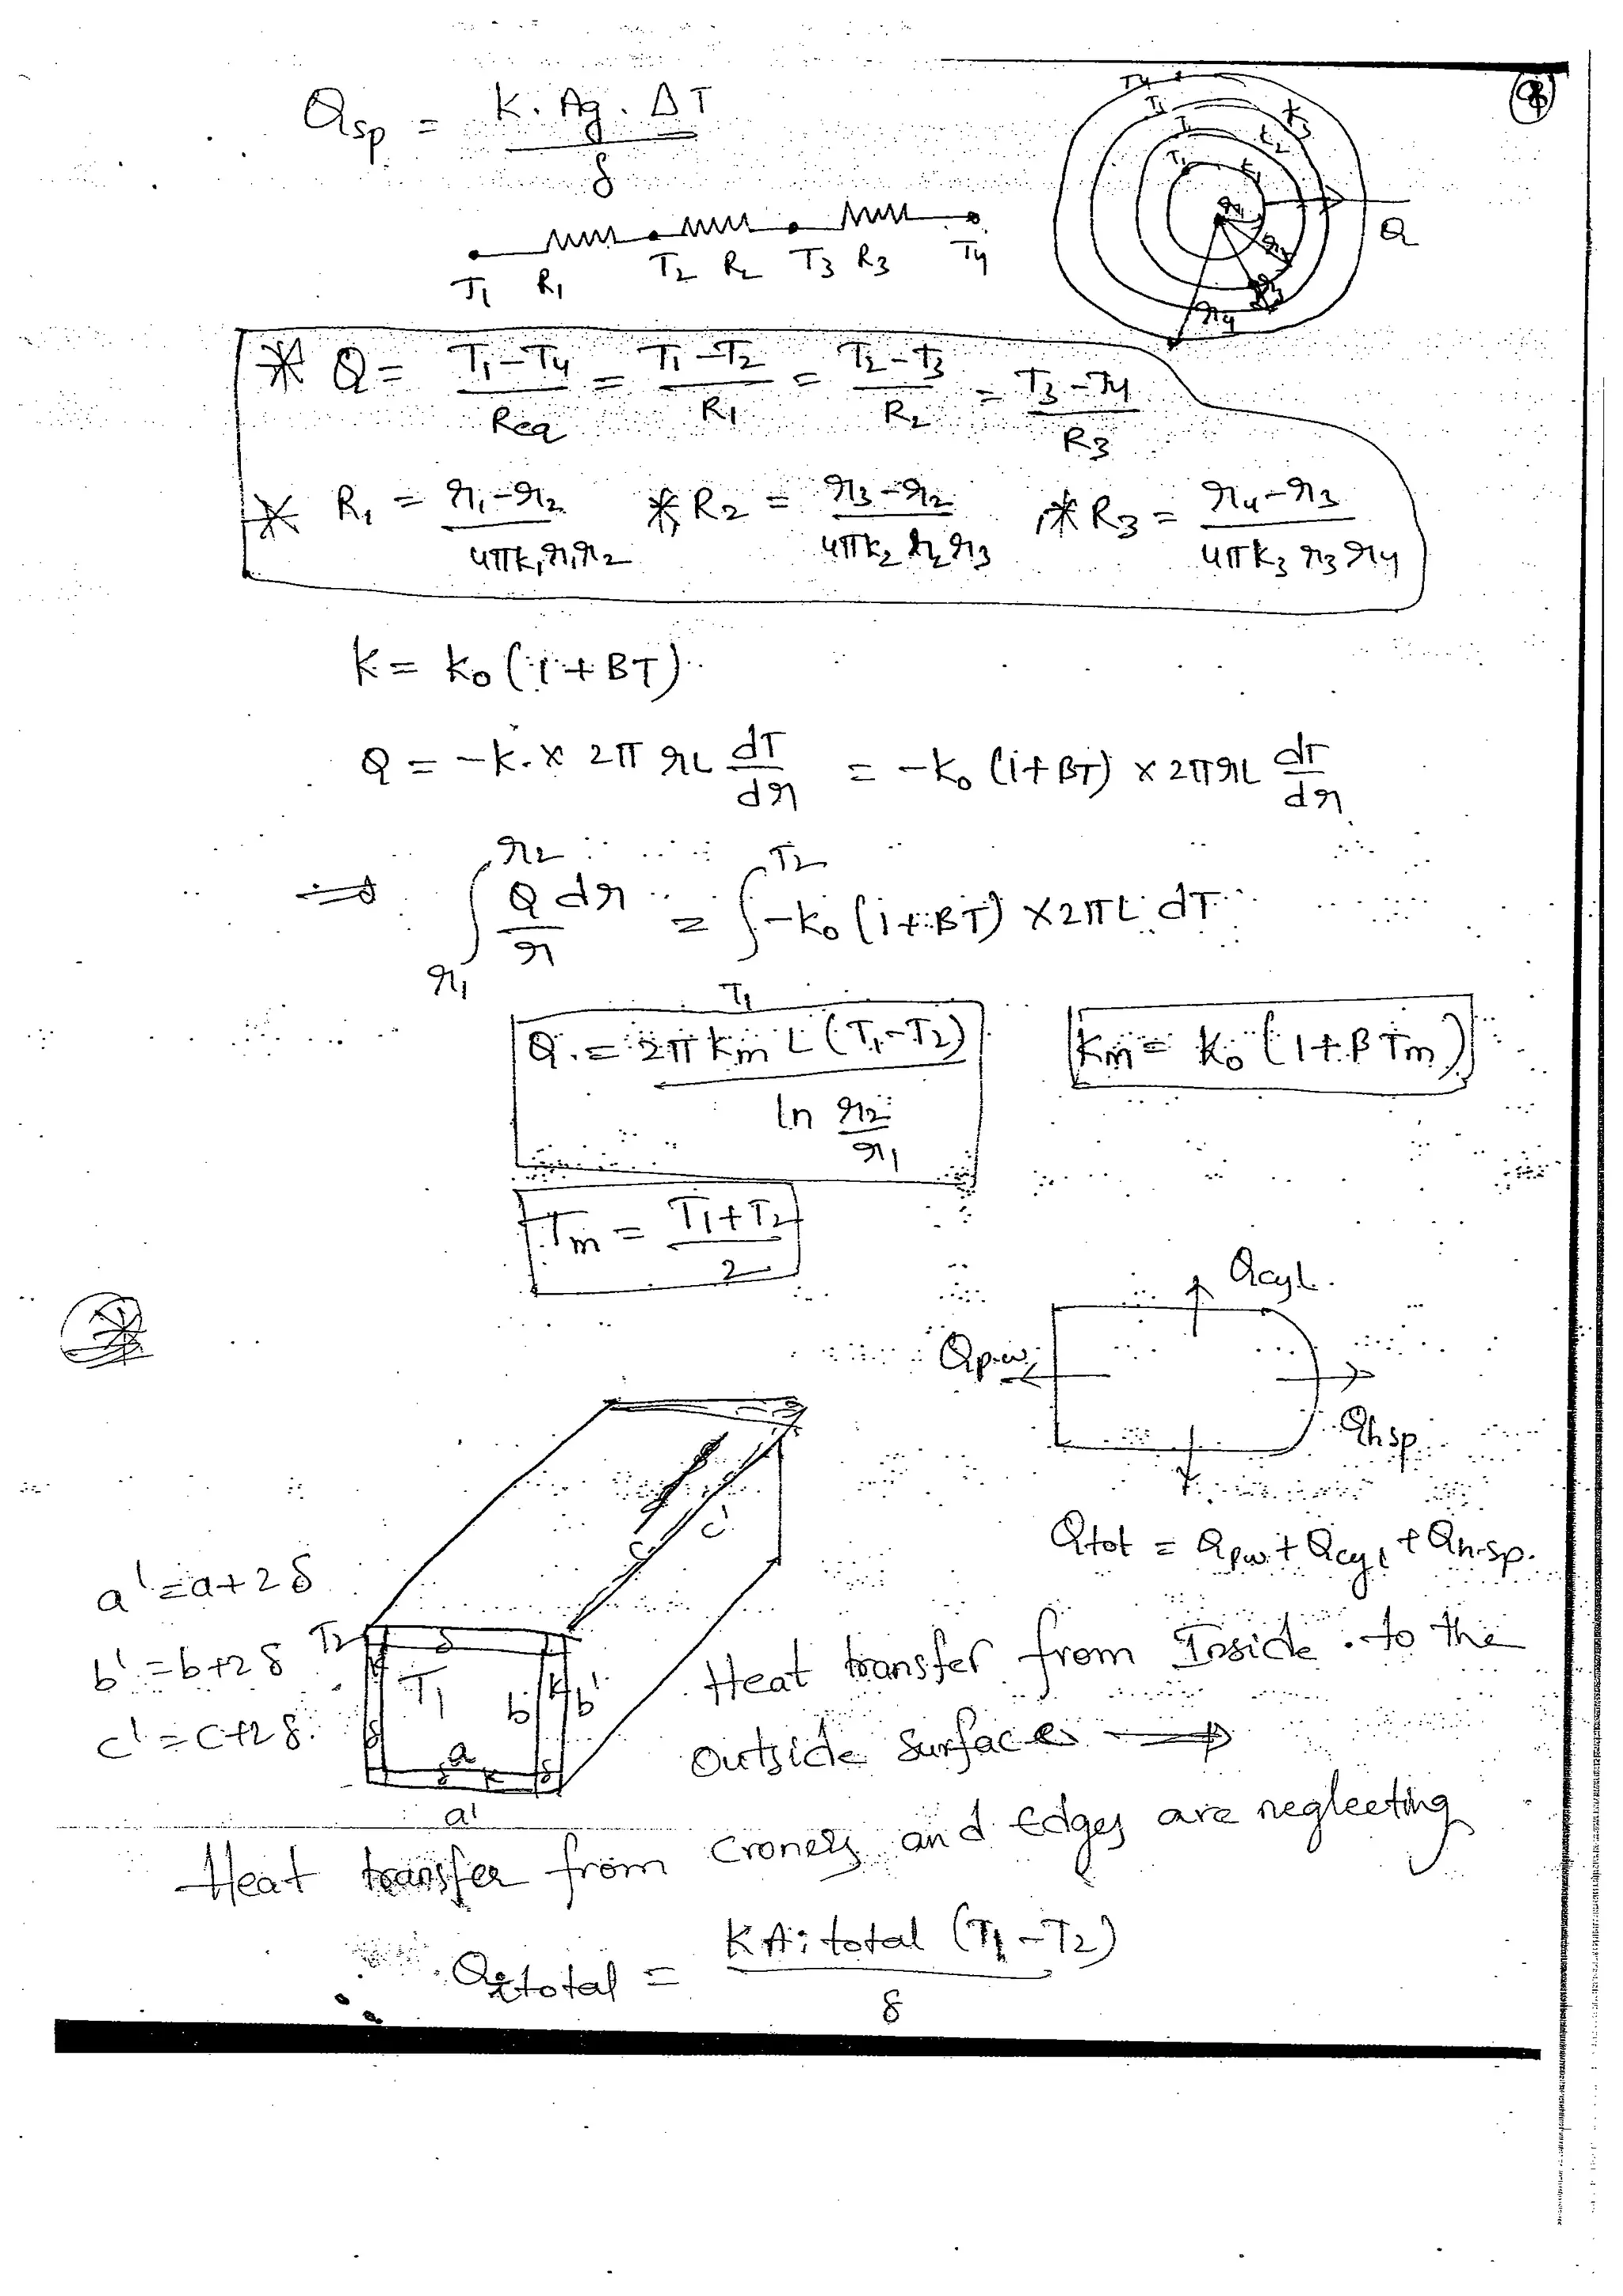 Qsp = K. Ag. ΔT / δ
T4 T3 T2 T1 K1 K2 K3 r1 r2 r3 r4 Q
T1 R1 T2 R2 T3 R3 T4
* Q = T1-T4 / Req = T1-T2 / R1 = T2-T3 / R2 = T3-T4 / R3
* R1 = r1-r2 / 4πk1r1r2 * R2 = r3-r2 / 4πk2 r2 r3 * R3 = r4-r3 / 4πk3 r3 r4
K = k0 (1+BT)
Q = -k. x 2π rL dT/dr = -k0 (1+BT) x 2πrL dT/dr
⇒ ∫r1^r2 Q dr / r = ∫T1^T2 -k0 (1+BT) x 2πL dT
Q = 2π km L (T1-T2) / ln r2/r1
Km = K0 (1+β Tm)
Tm = T1+T2 / 2
Qcyl.
Qp.w.
Qh sp
Qtot = Qpw + Qcyl + Qh.sp.
c' c
a' = a+2δ
b' = b+2δ
c' = c+2δ.
T2 δ
T1 b k b'
δ a
δ k δ
a'
Heat transfer from Inside to the
outside surfaces ⇒
Heat transfer from croners and Edges are neglecting
Qi total = K Ai total (T1-T2) / δ